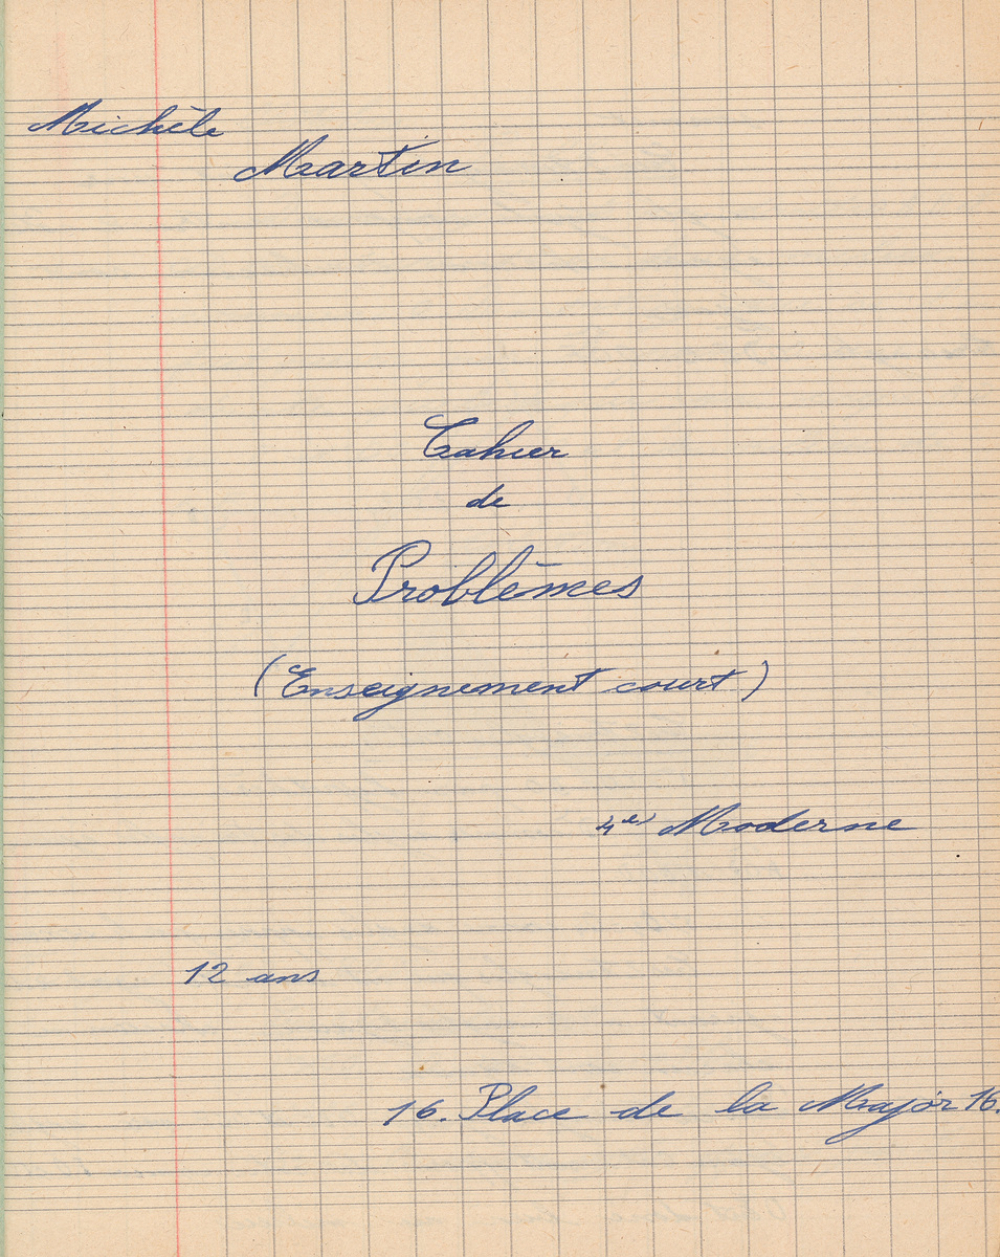 Michèle
Martin
Cahier
de
Problèmes
(Enseignement court)
4è Moderne
12 ans
16. Place de la Major 16.